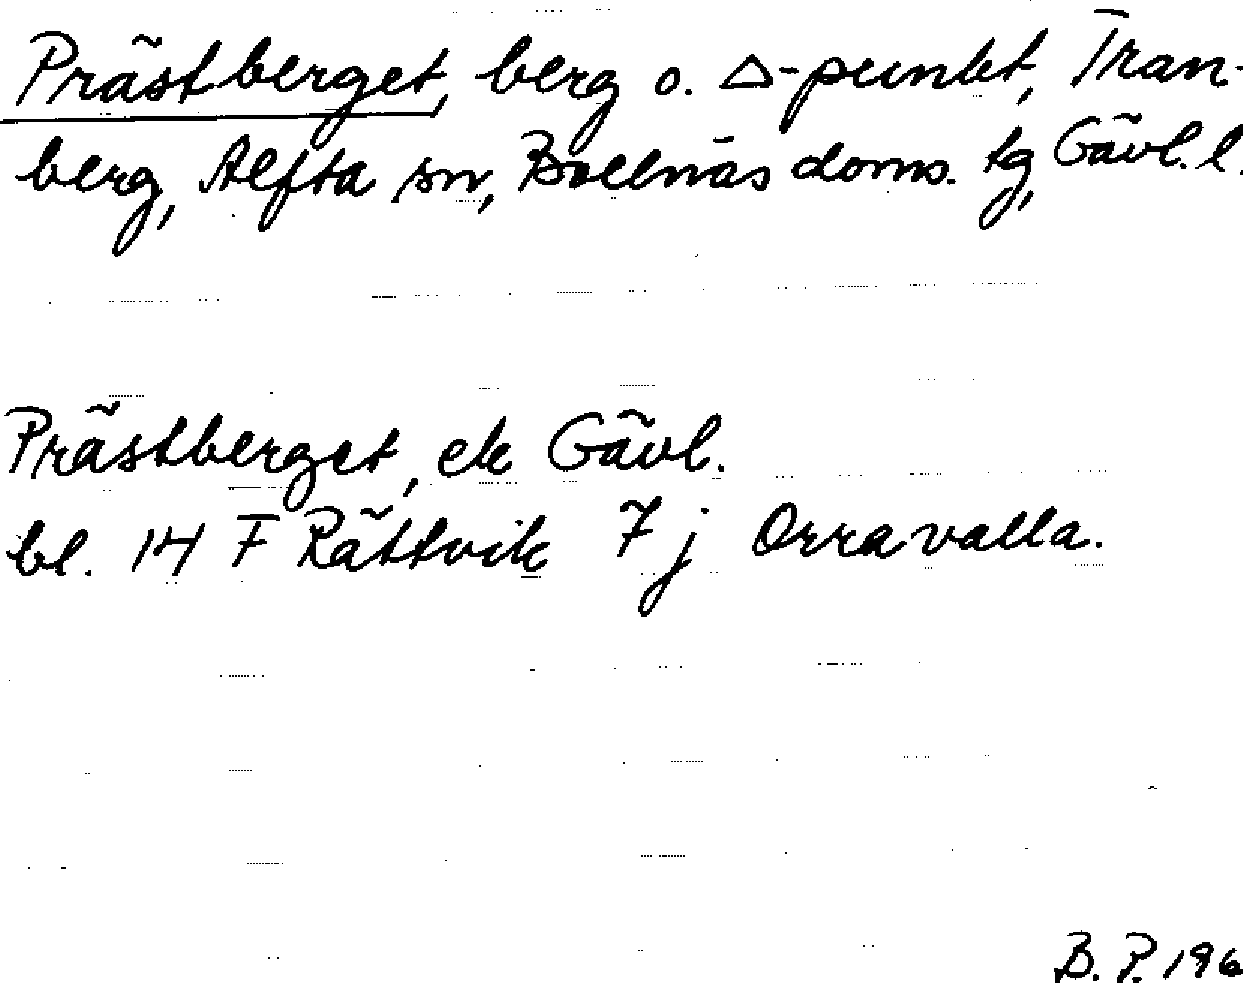 Prästberget, berg o. △-punkt, Tran-
berg, Alfta sn, Bollnäs doms. tg, Gävl. l.
Prästberget, ek Gävl.
bl. 14 F Rättvik 7 j Orravalla.
B. P. 196